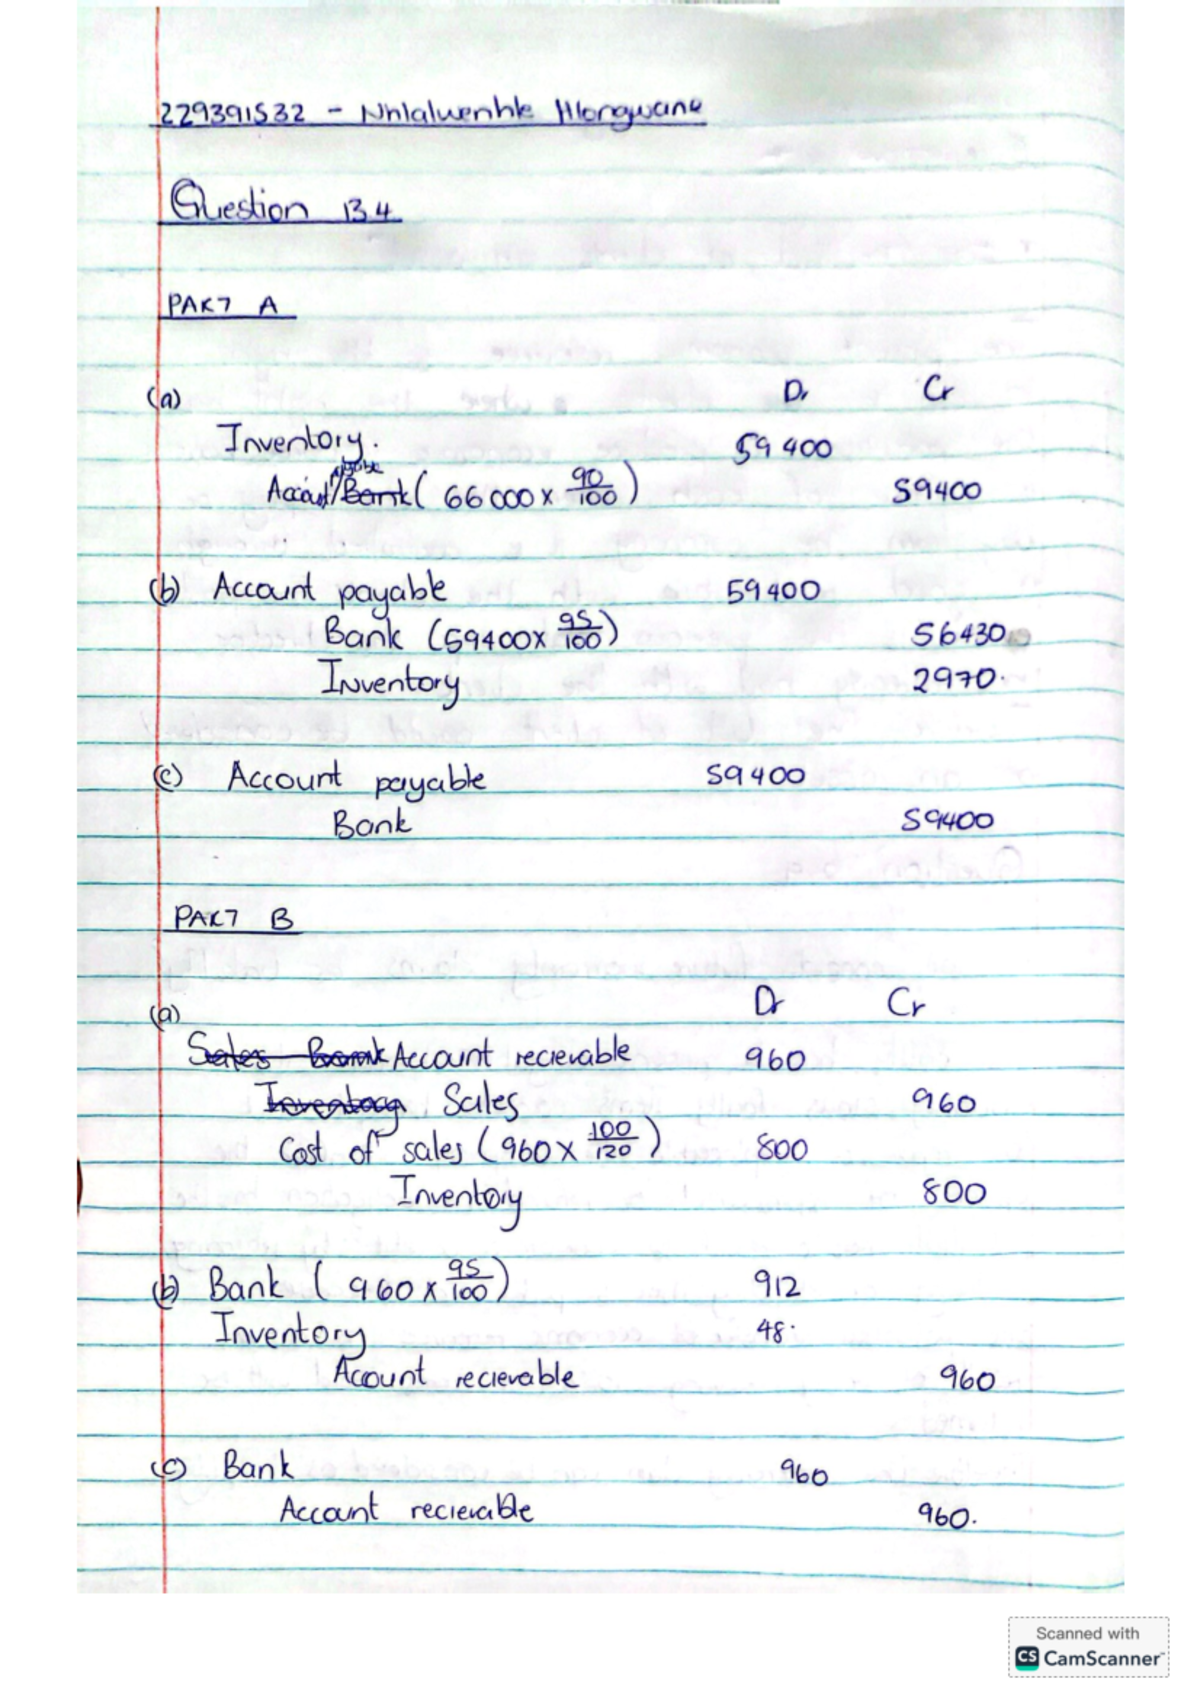 229391532 - Nhlalwenhle Hlongwane
Question 13.4
PART A
(a) Dr Cr
Inventory. 59 400
Account payable / Bank ( 66 000 x 90/100 ) 59400
(b) Account payable 59400
Bank (59400x 95/100) 56430
Inventory 2970.
(c) Account payable 59400
Bank 59400
PART B
(a) Dr Cr
Sales Bank Account recievable 960
Inventory Sales 960
Cost of sales (960 x 100/120) 800
Inventory 800
(b) Bank ( 960 x 95/100) 912
Inventory 48.
Account recievable 960
(c) Bank 960
Account recievable 960.
Scanned with
CS CamScanner